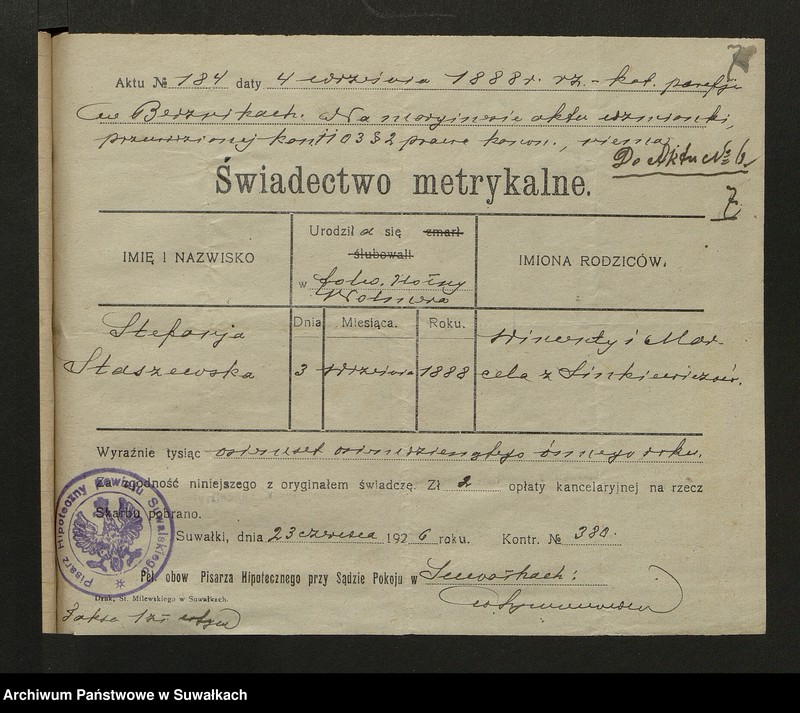 7
Aktu № 184 daty 4 września 1888 r. rz.-kat. parafji
w Berżnikach. Na marginesie aktu wzmianki,
przewidzianej kan. 1103 § 2 prawa kanon., niema.
Do Aktu № 6.
7
Świadectwo metrykalne.
IMIĘ I NAZWISKO
Urodził a się zmarł
ślubowali
w folw. Hołny
Wolmera
IMIONA RODZICÓW.
Dnia Miesiąca. Roku.
Stefanja
Staszewska
3 września 1888
Wincenty i Mar-
cela z Sinkiewiczów.
Wyraźnie tysiąc osiemset osiemdziesiątego ósmego roku.
Za zgodność niniejszego z oryginałem świadczę. Zł 2 opłaty kancelaryjnej na rzecz
Skarbu pobrano.
Suwałki, dnia 23 czerwca 1926 roku. Kontr. № 380.
Pisarz Hipoteczny Powiatu Suwalskiego
Peł. obow. Pisarza Hipotecznego przy Sądzie Pokoju w Suwałkach:
Druk. St. Milewskiego w Suwałkach.
Archiwum Państwowe w Suwałkach